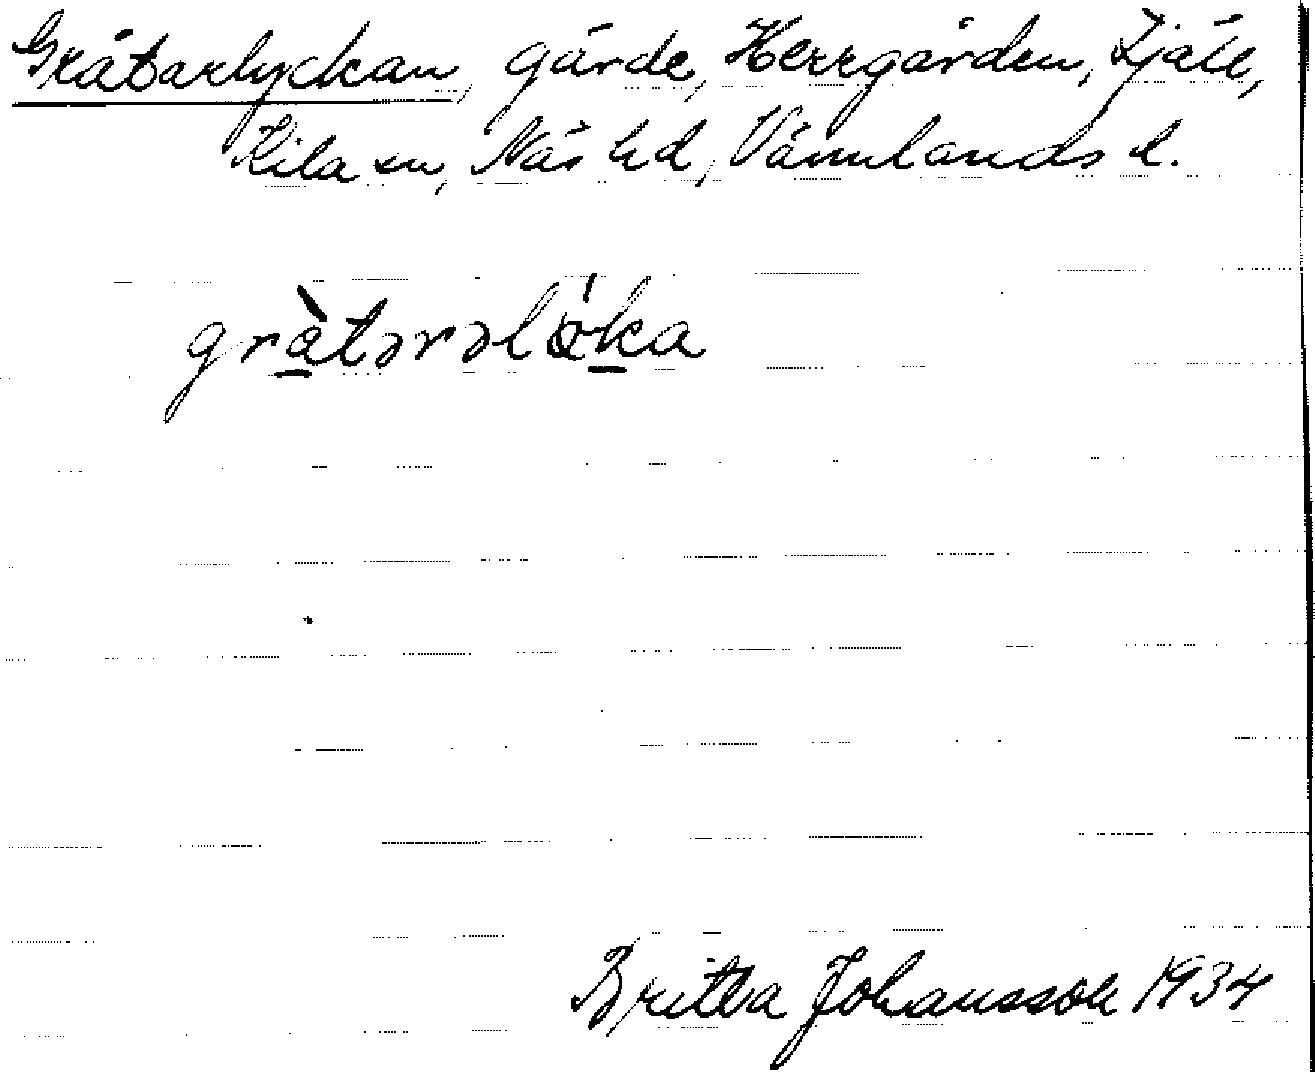 Gråtarlyckan, gärde, Herrgården, Tjäll,
Kila sn, Näs hd, Värmlands l.
grằtərəlö́ka
Britta Johansson 1934